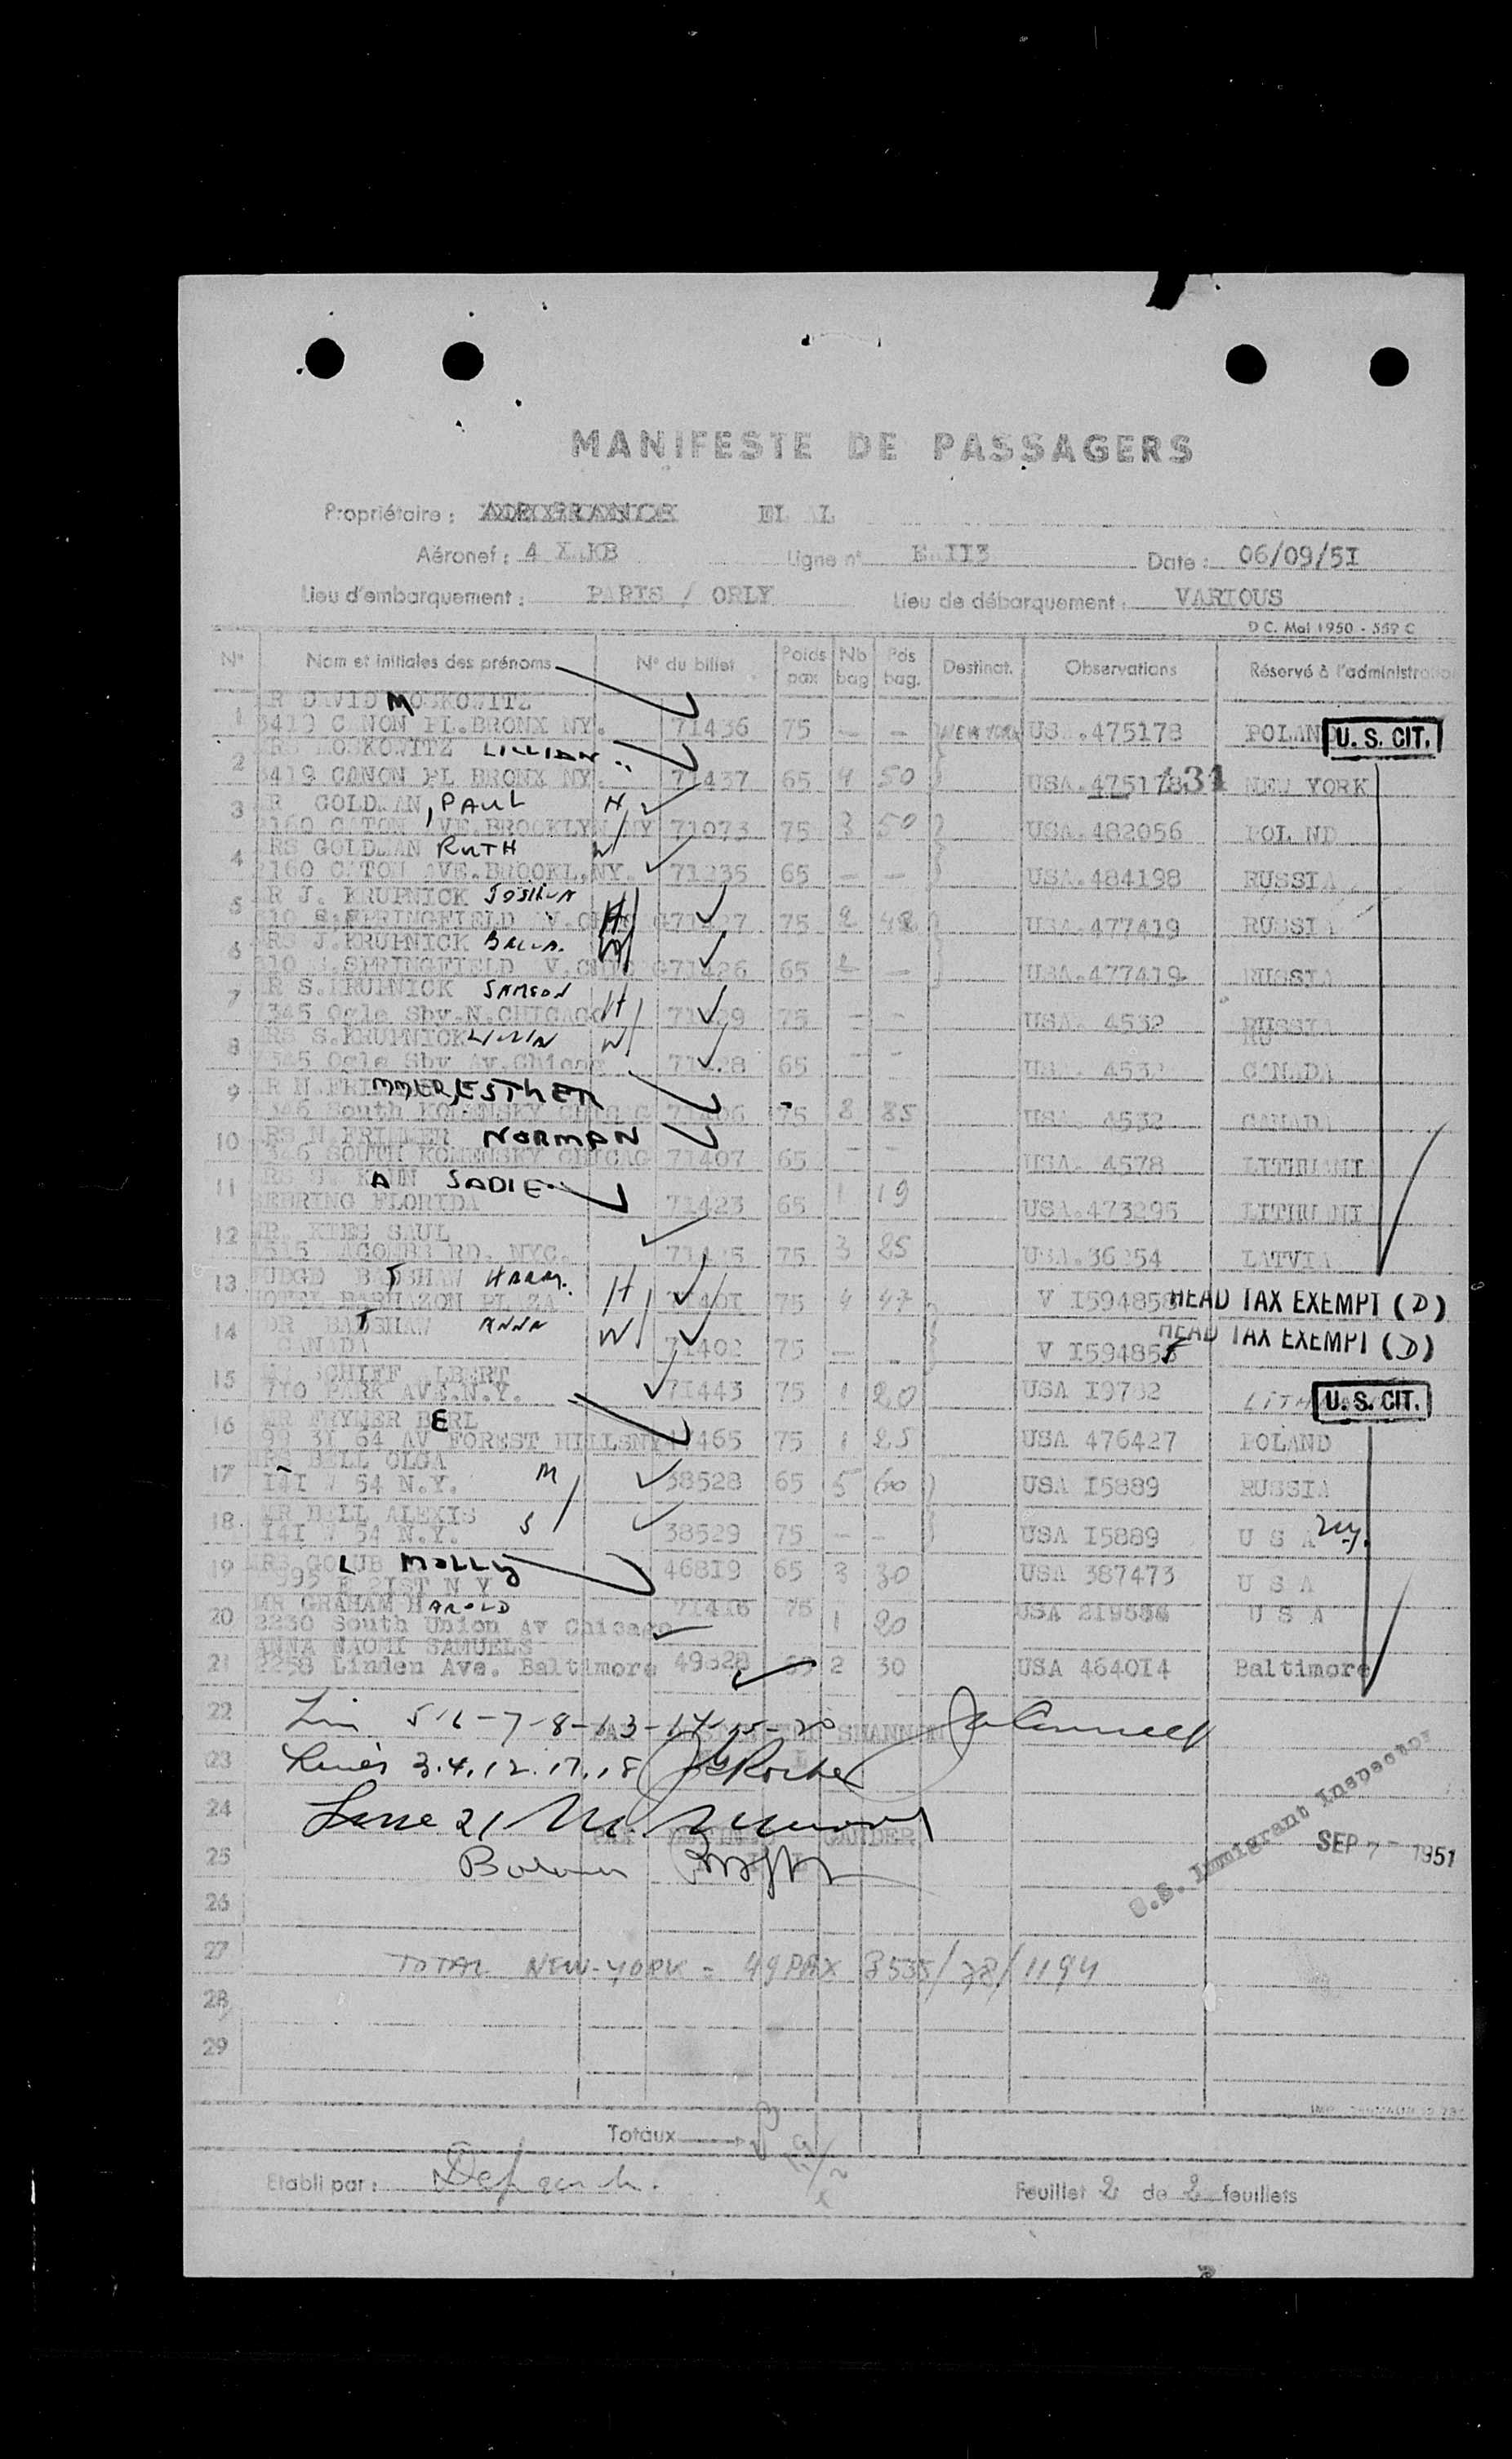 MANIFESTE DE PASSAGERS
Propriétaire : AIR FRANCE EL AL
Aéronef : 4 X.KB Ligne n° E.II3 Date : 06/09/5I
Lieu d'embarquement : PARIS / ORLY Lieu de débarquement : VARIOUS
D C. Mai 1950 - 559 C
N° Nom et initiales des prénoms N° du billet Poids pax Nb bag Pds bag. Destinat. Observations Réservé à l'administration
MR DAVID MOSKOWITZ
1 3419 CANON PL.BRONX NY. 71436 75 — — NEW YORK USA.475178 POLAND U. S. CIT.
MRS MOSKOWITZ LILLIAN
2 3419 CANON PL BRONX NY. 71437 65 4 50 USA.475178 NEW YORK
MR GOLDMAN, PAUL H
3 2160 CATON AVE.BROOKLYN NY 71073 75 3 50 USA.482056 POLAND
MRS GOLDMAN RUTH W
4 2160 CATON AVE.BROOKL.NY. 71235 65 — — USA.484198 RUSSIA
MR J. KRUPNICK JOSHUA H
5 SPRINGFIELD AV. 71427 75 2 48 USA.477419 RUSSIA
MRS J.KRUPNICK W
6 SPRINGFIELD 71426 65 2 — USA.477419 RUSSIA
MR S.KRUPNICK SAMSON H
7 Ogle Sby.N.CHICAGO 71429 75 — — USA. 4532 RUSSIA
MRS S.KRUPNICK W
8 Ogle Sby Av.Chicag 71428 65 — — USA. 4532 CANADA
MR N.FRIMMER, ESTHER
9 South KOMENSKY CHICAG 71406 75 2 85 USA. 4532 CANADA
MRS N.FRIMMER NORMAN
10 SOUTH KOMENSKY CHICAG 71407 65 — — USA. 4578 LITHUANI
MRS S. KAHN SADIE
11 SEBRING FLORIDA 71423 65 1 19 USA.473295 LITHUANI
MR. KIES SAUL
12 MACOMBS RD. NYC. 75 3 25 USA.36254 LATVIA
JUDGE BATSHAW HARRY. H
13 HOTEL BARBAZON PLAZA 71401 75 4 47 V I594858 HEAD TAX EXEMPT (D)
DR BATSHAW ANNA W
14 CANADA 71402 75 — — V I594855 HEAD TAX EXEMPT (D)
SCHIFF ALBERT
15 710 PARK AVE.N.Y. 71443 75 1 20 USA I9782 U. S. CIT.
MR FRYMER BERL
16 99 31 64 AV FOREST HILLSNY 465 75 1 25 USA 476427 POLAND
MRS BELL OLGA M
17 I4I W 54 N.Y. 38528 65 5 60 USA I5889 RUSSIA
MR BELL ALEXIS S
18 I4I W 54 N.Y. 38529 75 — — USA I5889 U S A
MRS GOLUB MOLLY
19 995 E 2IST N Y 46819 65 3 30 USA 387473 U S A
MR GRAHAM HAROLD
20 2230 South Union Av Chicago 71416 75 1 20 USA 219534 U S A
ANNA NAOMI SAMUELS
21 2258 Linden Ave. Baltimore 49828 65 2 30 USA 464014 Baltimore
22 5-6-7-8-13-14-15-20 SHANNON
23 3.4.12.17.18
24 21
GANDER
25
U.S. Immigrant Inspector
SEP 7 - 1951
26
27 TOTAL NEW-YORK = 49 PAX 3535/78/1194
28
29
Totaux
Etabli par :
Feuillet 2 de 2 feuillets